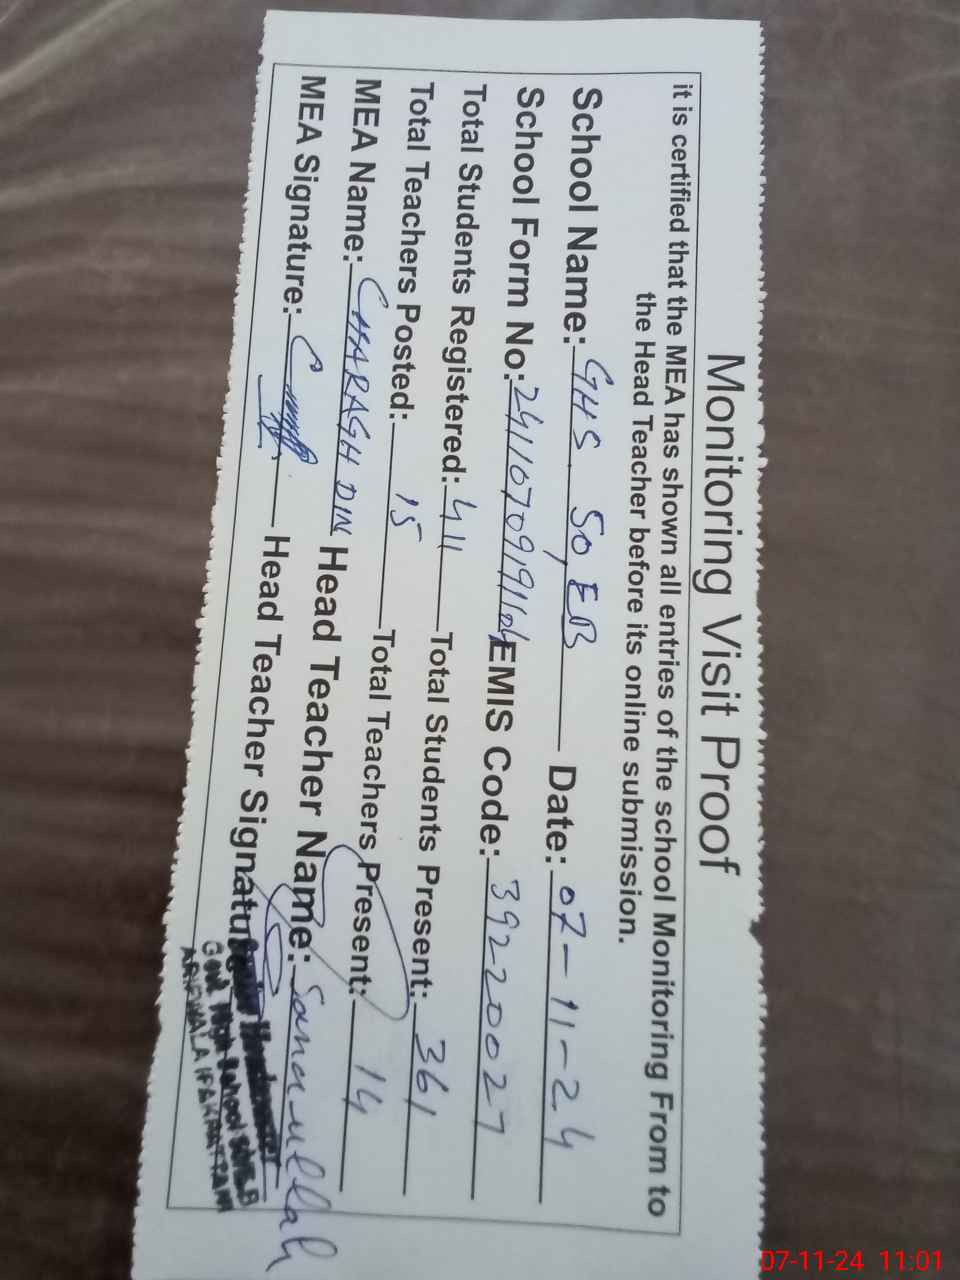 Monitoring Visit Proof
it is certified that the MEA has shown all entries of the school Monitoring From to
the Head Teacher before its online submission.
School Name: GHS 50, EB Date: 07-11-24
School Form No: EMIS Code: 39220027
Total Students Registered: 411 Total Students Present: 361
Total Teachers Posted: 15 Total Teachers Present: 14
MEA Name: CHARAGH DIN Head Teacher Name: Sanaullah
MEA Signature: Head Teacher Signature
Govt High School
ARIFWALA (PAKPATTAN)
07-11-24 11:01